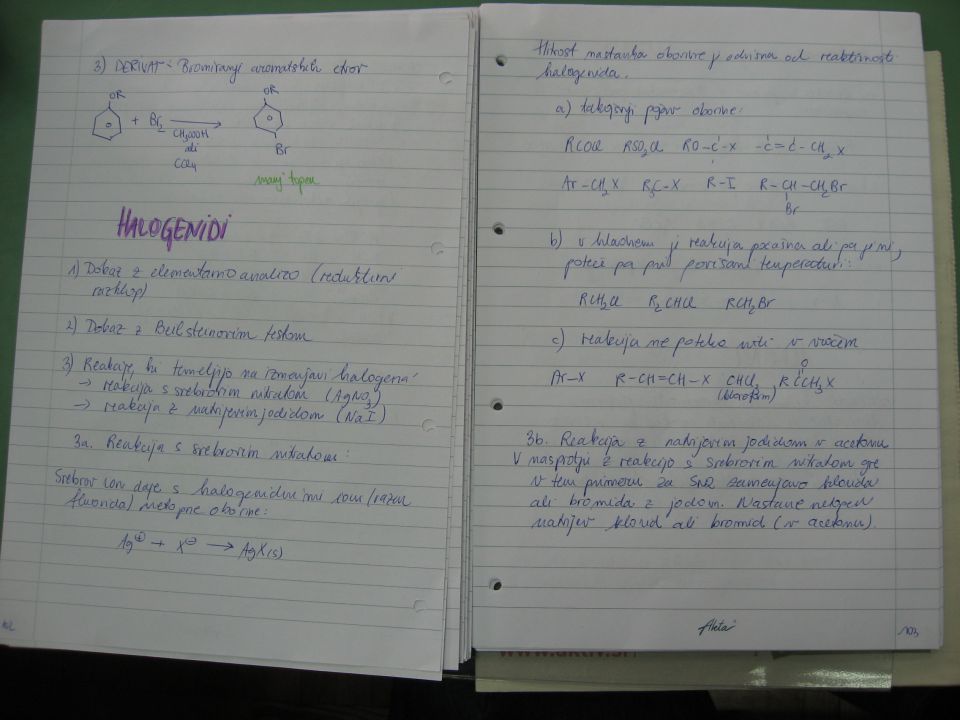 3) DERIVAT: Bromiranje aromatskih etrov
OR
OR
+ Br2
CH3COOH
ali
CCl4
Br
manj topen
HALOGENIDI
1) Dokaz z elementarno analizo (reduktivni
razklop)
2) Dokaz z Beilsteinovim testom
3) Reakcije, ki temeljijo na izmenjavi halogena
→ reakcija s srebrovim nitratom (AgNO3)
→ reakcija z natrijevim jodidom (NaI)
3a. Reakcija s srebrovim nitratom:
Srebrov ion daje s halogenidnimi ioni (razen
fluorida) netopne oborine:
Ag⊕ + X⊖ → AgX(s)
102
Hitrost nastanka oborine je odvisna od reaktivnosti
halogenida.
a) takojšnji pojav oborine:
RCOCl RSO2Cl RO-C-X -C=C-CH2X
Ar-CH2X R3C-X R-I R-CH-CH2Br
Br
b) v hladnem je reakcija počasna ali pa je ni,
poteče pa pri povišani temperaturi:
RCH2Cl R2CHCl RCH2Br
c) reakcija ne poteka niti v vročem
O
Ar-X R-CH=CH-X CHCl3, RCCH2X
(kloroform)
3b. Reakcija z natrijevim jodidom v acetonu
V nasprotju z reakcijo s srebrovim nitratom gre
v tem primeru za SN2 zamenjavo klorida
ali bromida z jodom. Nastane netopen
natrijev klorid ali bromid (v acetonu).
Aleta
103